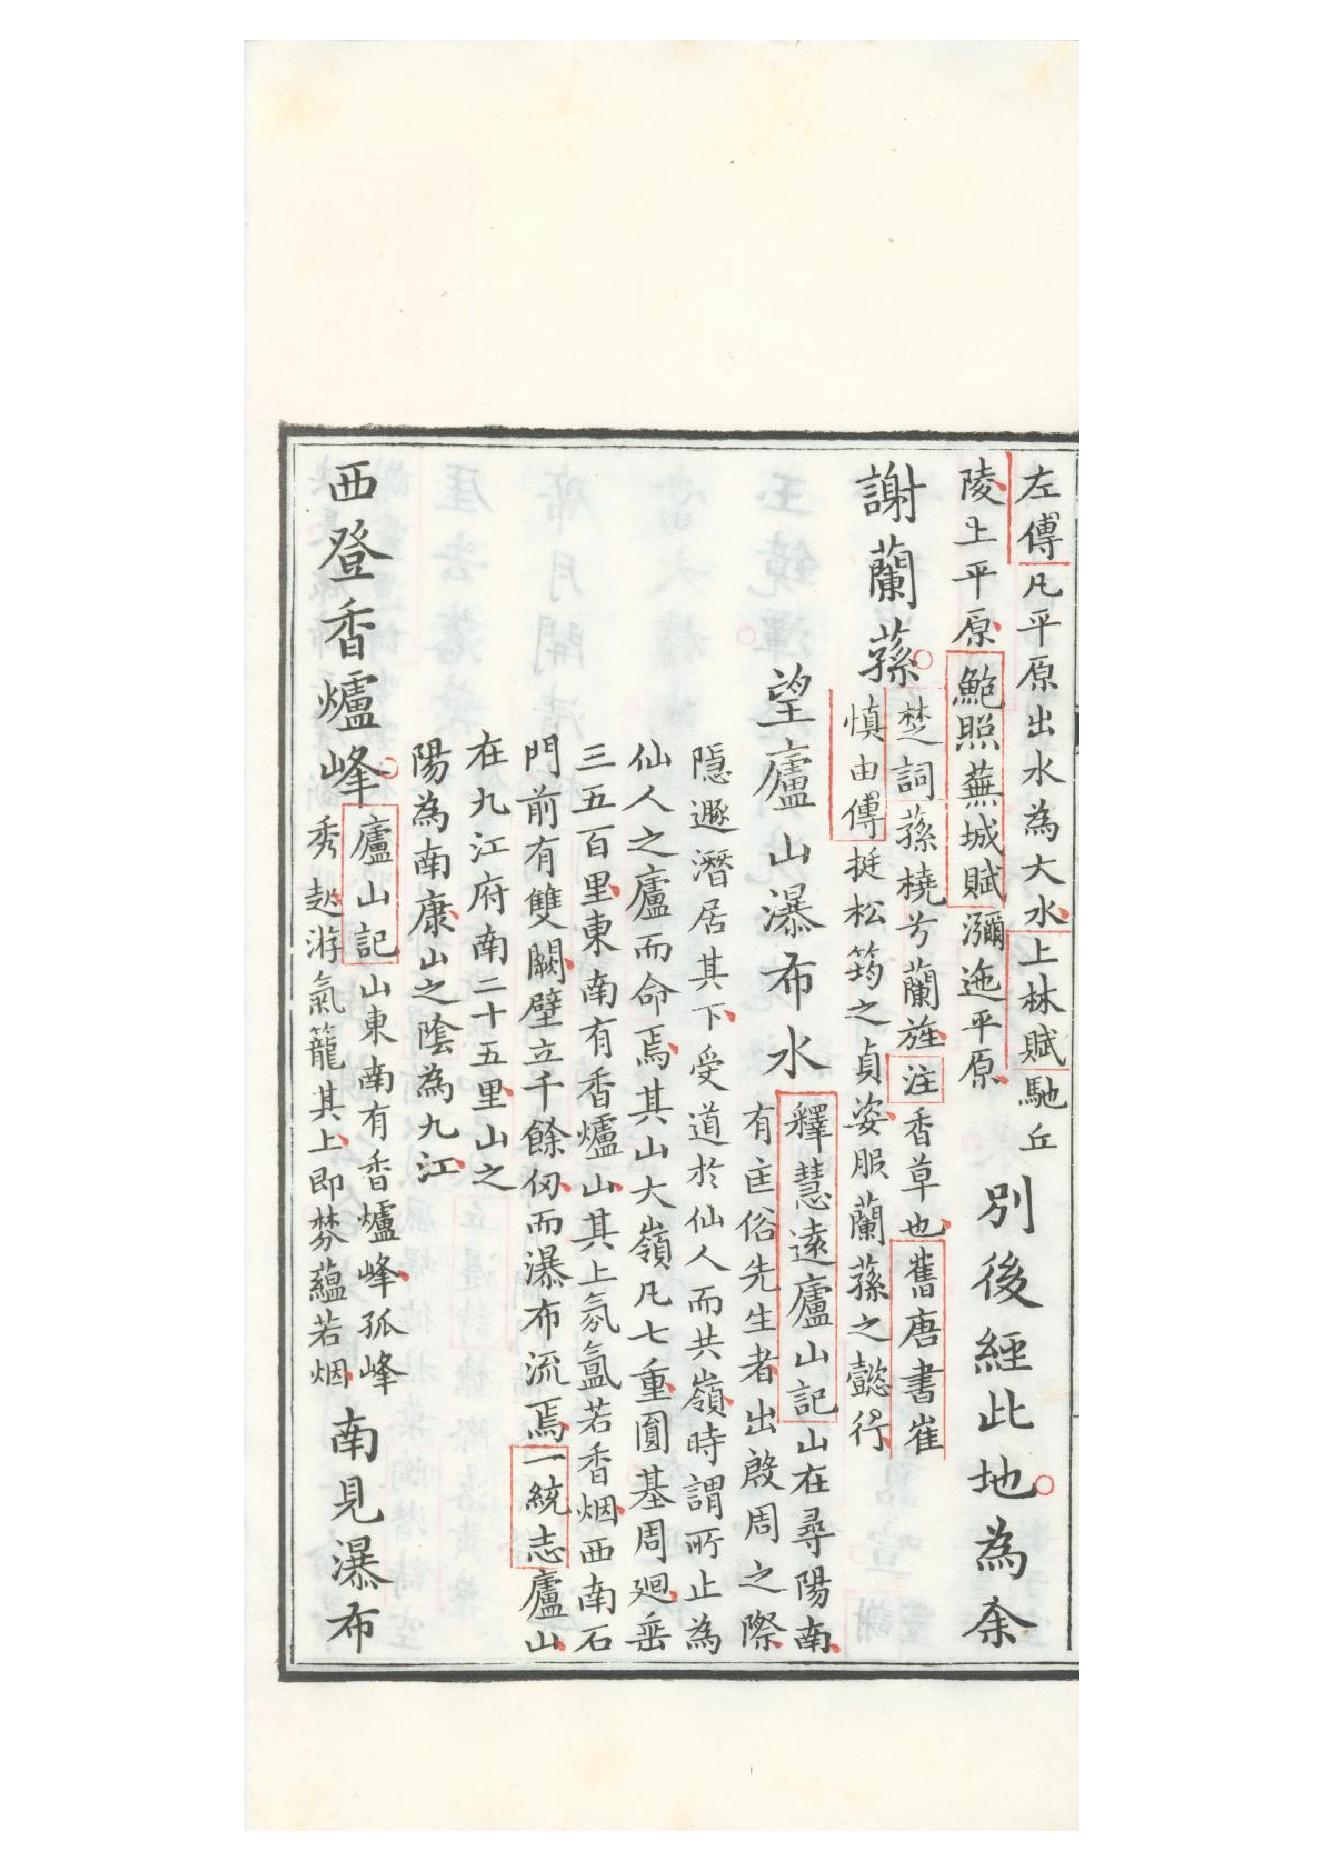 左傳凡平原出水為大水上林賦馳丘
陵上平原鮑照蕪城賦瀰迤平原
別後經此地為余
謝蘭蓀
楚詞蓀橈兮蘭旌注香草也舊唐書崔
慎由傳挺松筠之貞姿服蘭蓀之懿行
望廬山瀑布水
釋慧遠廬山記山在尋陽南
有匡俗先生者出殷周之際
隱遯潛居其下受道於仙人而共嶺時謂所止為
仙人之廬而命焉其山大嶺凡七重圓基周廻垂
三五百里東南有香爐山其上氛氳若香烟西南石
門前有雙闕壁立千餘仞而瀑布流焉一統志廬山
在九江府南二十五里山之
陽為南康山之陰為九江
西登香爐峰
廬山記山東南有香爐峰孤峰
秀起游氣籠其上即棼蘊若烟
南見瀑布